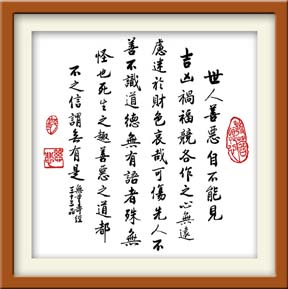 世人善惡自不能見
吉凶禍福競各作之心無遠
慮迷於財色哀哉可傷先人不
善不識道德無有語者殊無
怪也死生之趣善惡之道都
不之信謂無有是
無量壽經